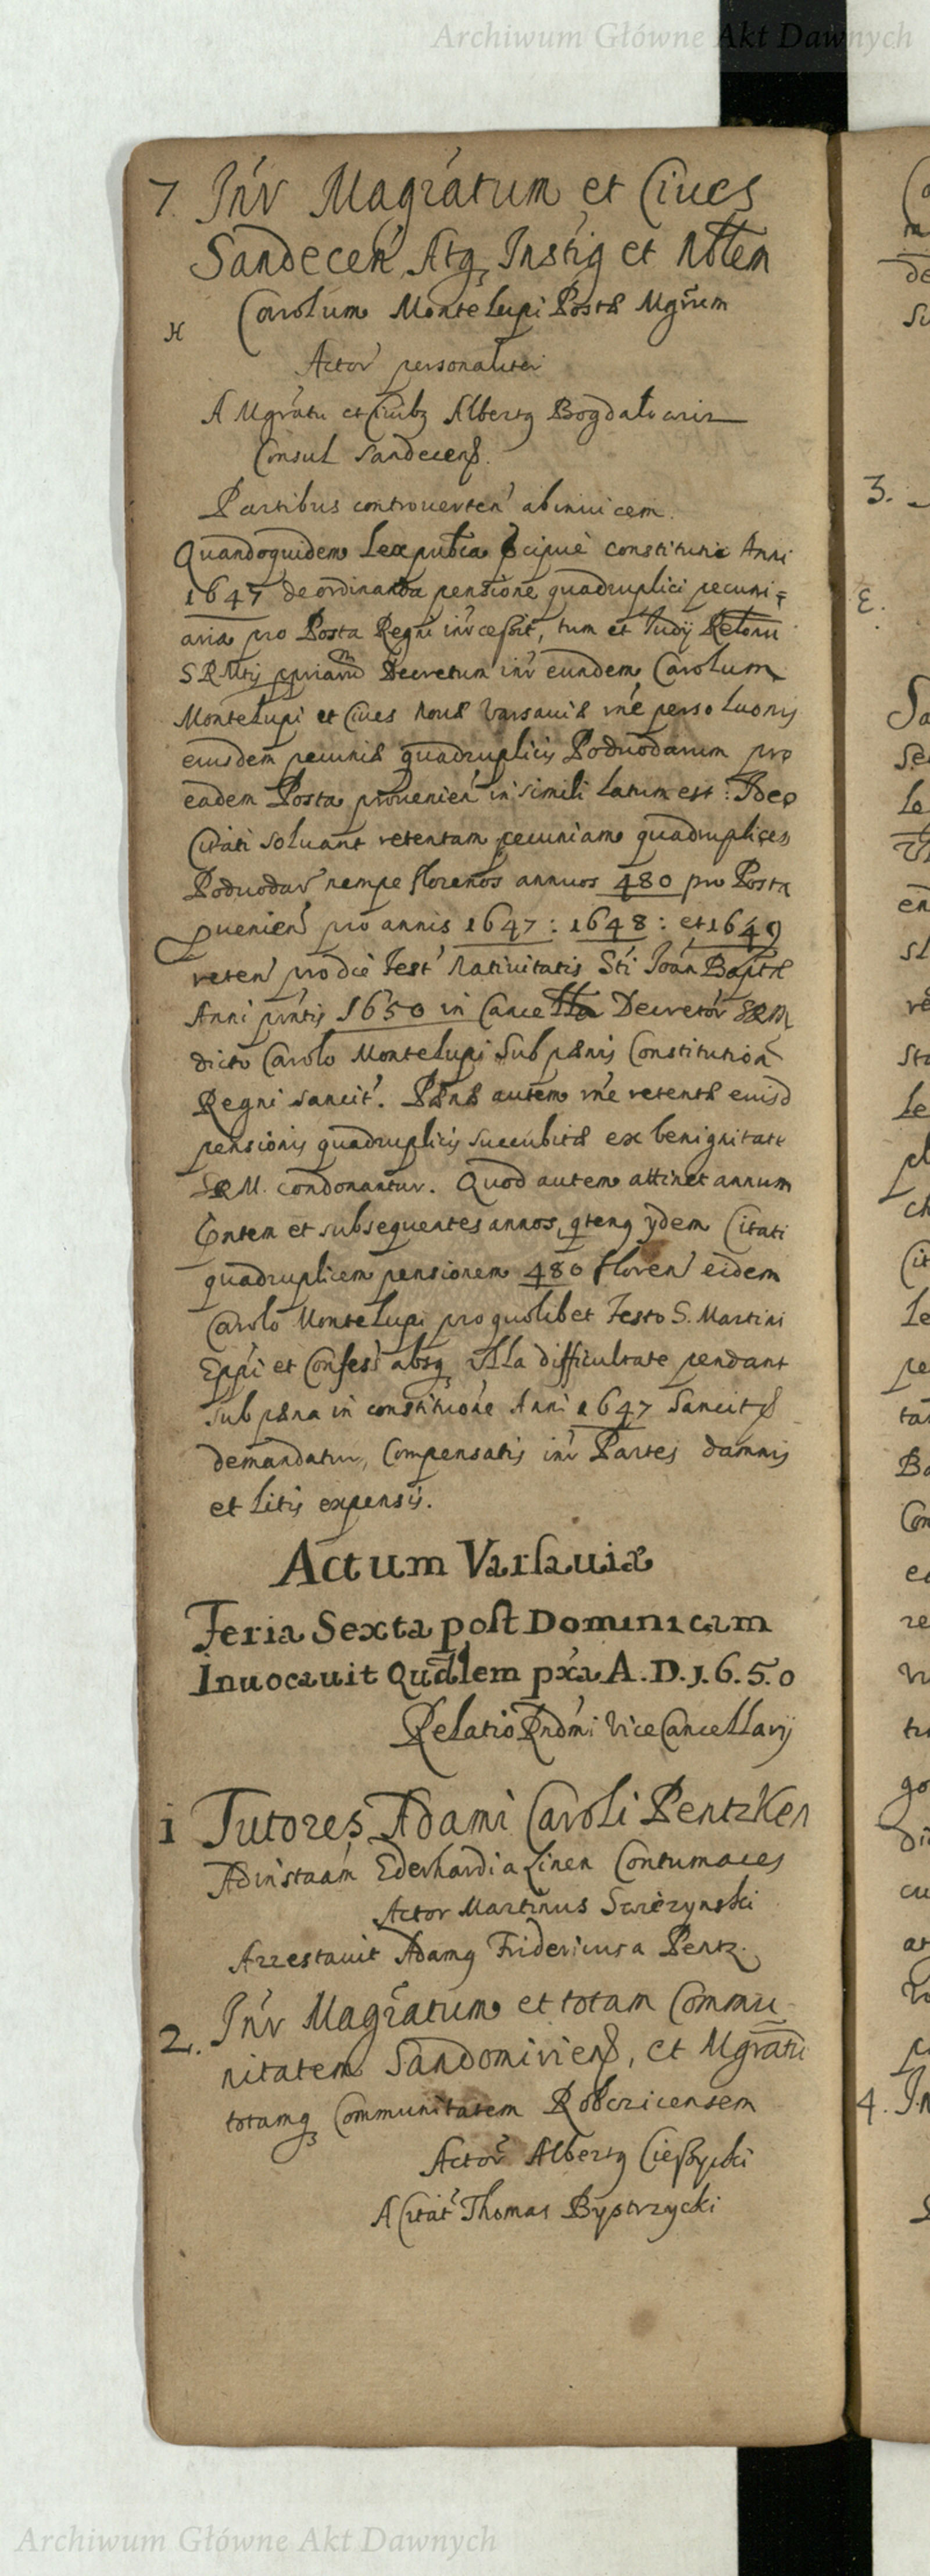 Archiwum Główne Akt Dawnych
7. Inr Magratum et Ciues
Sandecen Atq Instig et Nbtem
Carolum Montelupi Postæ Mgrum
H
Actor personaliter
A Mgratu et Ciuibz Albertq Bogdałowicz
Consul Sandecens.
Partibus controuerten abinuicem.
Quandoquidem Lex publca pcipuè constitutio Anni
1647 de ordinanda pensione quadruplici pecuni=
aria pro Posta Regni intcessit, tum et Judÿ Relonu
SRMtis ppriaru Decretum inr eundem Carolum
Montelupi et Ciues Nouæ Varsauiæ rne persoluonis
eiusdem pecuniæ quadruplicis Podwodarum pro
eadem Posta prouenien in simili Latum est: Ideo
Citati soluant retentam pecuniam quadruplices
Podwodar nempe florenos annuos 480 pro Posta
puenien pro annis 1647: 1648: et 1649
reten pro die Fest Natiuitatis Sti Joan Baptæ
Anni pntis 1650 in Cancellа Decretor SRM
dicto Carolo Montelupi sub pænis Constitution
Regni sancit. Pænæ autem rne retentæ eiusd
pensionis quadruplicis succubitæ ex benignitate
SRM. condonantur. Quod autem attinet annum
pntem et subsequentes annos, qtenq ydem Citati
quadruplicem pensionem 480 floren eidem
Carolo Montelupi pro quolibet Festo S. Martini
Eppi et Confess absq ulla difficultate pendant
sub pæna in constitutione Anni 1647 Sancita
demandatur, Compensatis inr Partes damnis
et Litis expensis.
Actum Varsauiæ
Feria Sexta post Dominicam
Inuocauit Qudlem pxa A.D. 1.6.5.0
Relatio Rndmi ViceCancellarij
1 Tutores Adami Caroli Pentzken
Ad instaam Ederhardi a Linen Contumaces
Actor Martinus
Arrestauit Adamq Fridericus a Pentz.
2. Inr Magratum et totam Commu
nitatem Sandomiriens, et Mgratu
totamq Communitatem Robczicensem
Actor Albertq
A Citat Thomas Bystrzycki
3.
4.
Archiwum Główne Akt Dawnych